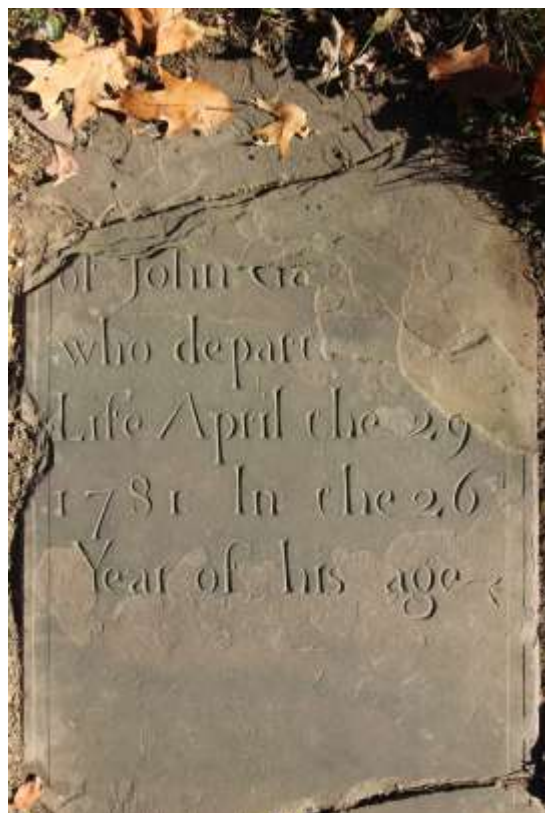 of John Cra
who depart
Life April the 29
1781 In the 26
Year of his age